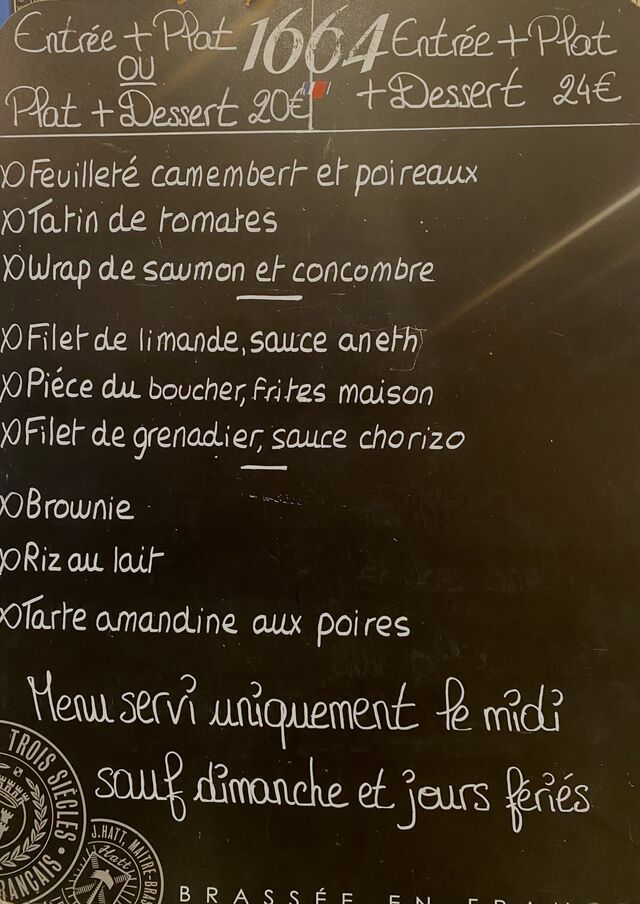 Entrée + Plat
OU
Plat + Dessert 20€
1664
Entrée + Plat
+ Dessert 24€
Feuilleté camembert et poireaux
Tatin de tomates
Wrap de saumon et concombre
Filet de limande, sauce aneth
Piéce du boucher, frites maison
Filet de grenadier, sauce chorizo
Brownie
Riz au lait
Tarte amandine aux poires
Menu servi uniquement le midi
sauf dimanche et jours fériés
TROIS SIÈCLES
J. HATT, MAITRE-BRAS
Hatt
BRASSÉE EN